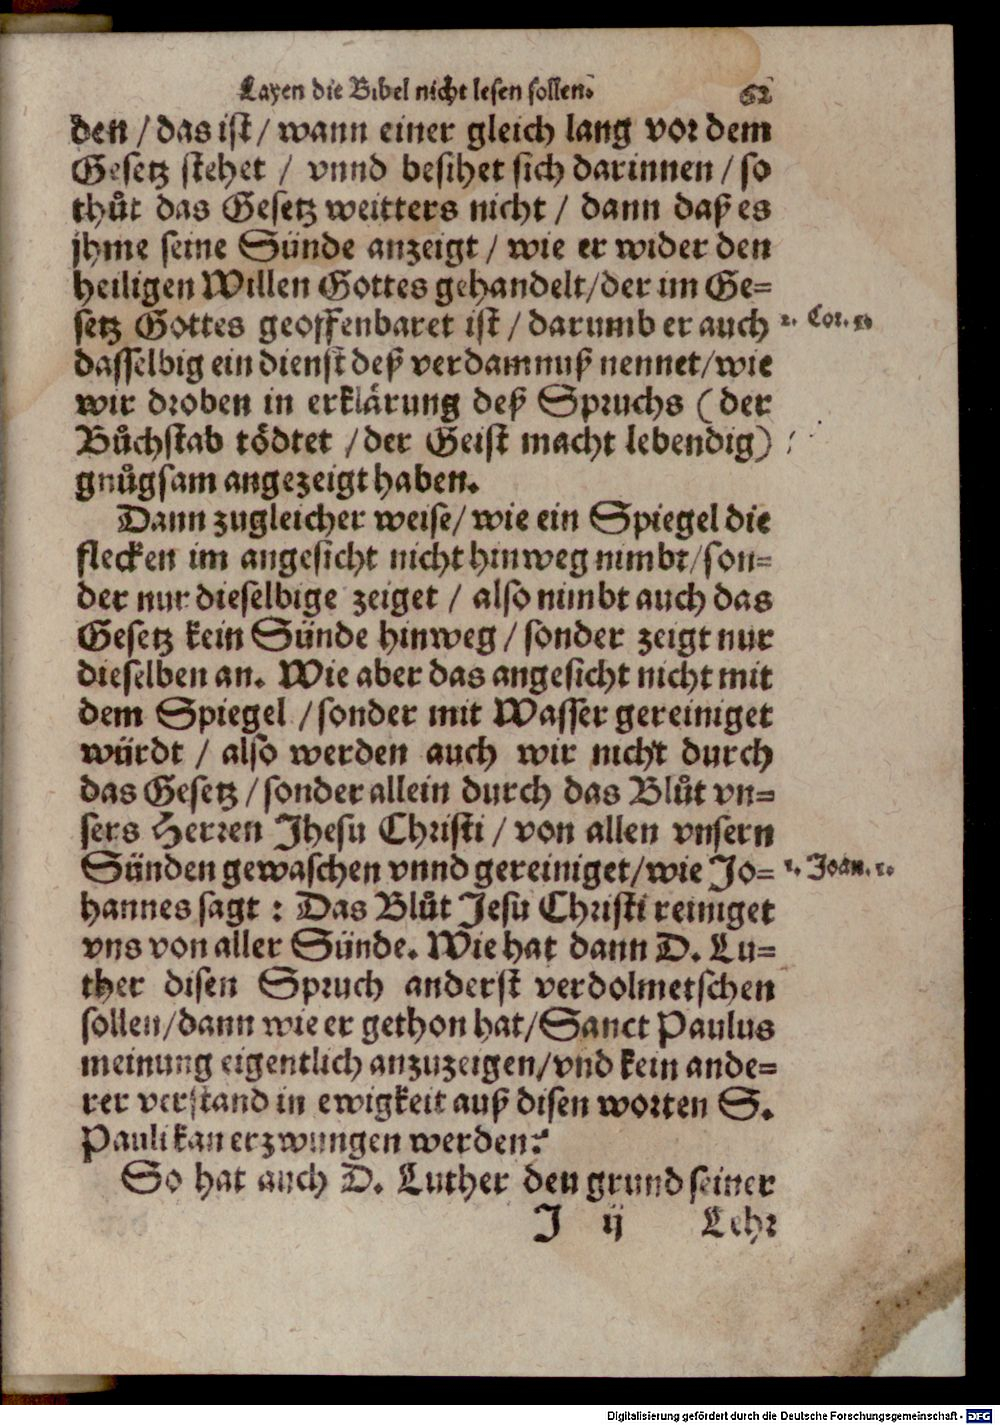 Layen die Bibel nicht lesen sollen. 62
den / das ist / wann einer gleich lang vor dem
Gesetz stehet / vnnd besihet sich darinnen / so
thůt das Gesetz weitters nicht / dann daß es
jhme seine Sünde anzeigt / wie er wider den
heiligen Willen Gottes gehandelt / der im Ge=
setz Gottes geoffenbaret ist / darumb er auch
2. Cor. 3.
dasselbig ein dienst deß verdamnuß nennet / wie
wir droben in erklärung deß Spruchs (der
Bůchstab tödtet / der Geist macht lebendig)
gnůgsam angezeigt haben.
Dann zugleicher weise / wie ein Spiegel die
flecken im angesicht nicht hinweg nimbt / son=
der nur dieselbige zeiget / also nimbt auch das
Gesetz kein Sünde hinweg / sonder zeigt nur
dieselben an. Wie aber das angesicht nicht mit
dem Spiegel / sonder mit Wasser gereiniget
würdt / also werden auch wir nicht durch
das Gesetz / sonder allein durch das Blůt vn=
sers Herren Jhesu Christi / von allen vnsern
Sünden gewaschen vnnd gereiniget / wie Jo=
1. Joan. 1.
hannes sagt : Das Blůt Jesu Christi reiniget
vns von aller Sünde. Wie hat dann D. Lu=
ther disen Spruch anderst verdolmetschen
sollen / dann wie er gethon hat / Sanct Paulus
meinung eigentlich anzuzeigen / vnd kein ande=
rer verstand in ewigkeit auß disen worten S.
Pauli kan erzwungen werden.
So hat auch D. Luther den grund seiner
J ij Lehr
Digitalisierung gefördert durch die Deutsche Forschungsgemeinschaft - DFG